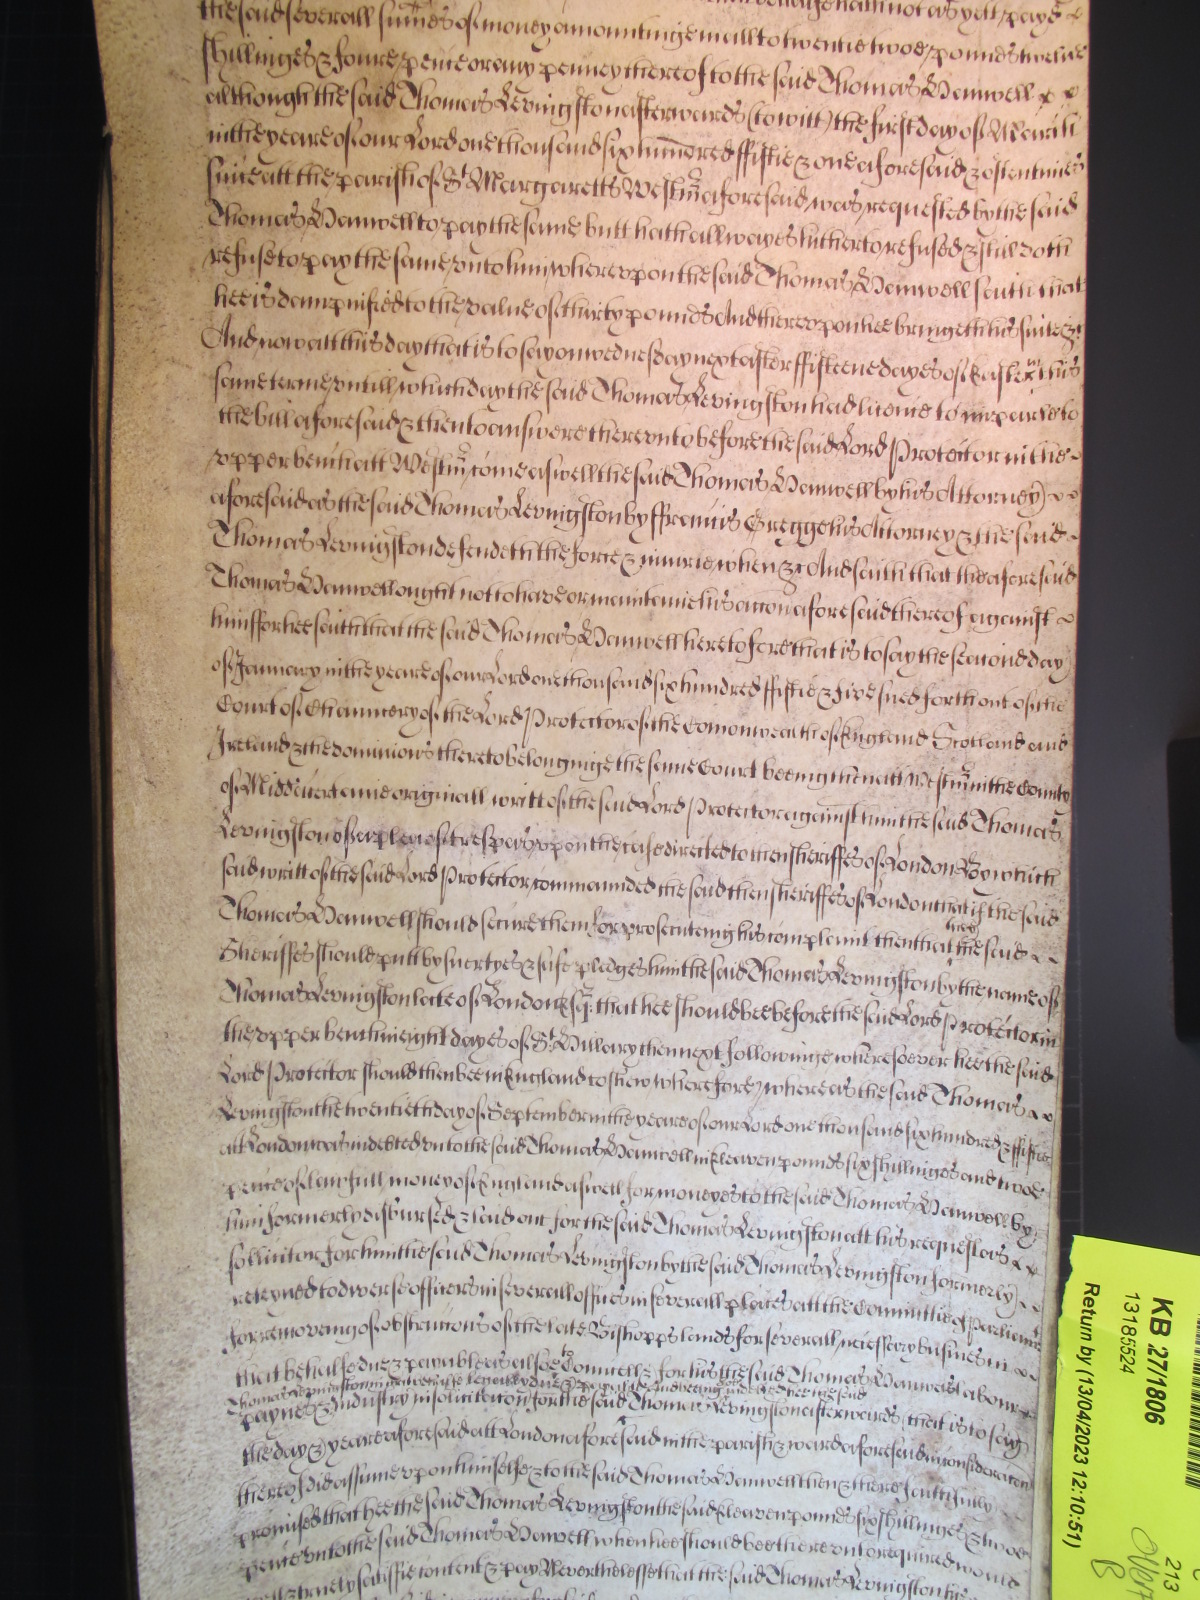 the said severall summes of money amountinge in all to twentie twoe pounds twelve
shillinges & foure pence or any penney thereof to the said Thomas Hamwell
although the said Thomas Levingston afterwards (to witt) the first day of March
in the yeare of our Lord one thousand six hundred ffiftie & one aforesaid & oftentimes
since att the parish of St Margaretts Westmr aforesaid was requested by the said
Thomas Hamwell to pay the same butt hath allwayes hitherto refused & still doth
refuse to pay the same unto him whereupon the said Thomas Hamwell saith that
hee is dampnified to the value of thirty pounds And thereupon hee bringeth his suite &c
And now att this day that is to say on wednesday next after ffifteene dayes of Easter this
same terme untill which day the said Thomas Levingston had licence to imparle to
the bill aforesaid & then to answere thereunto before the said Lord Protector in the
upper bench att Westmr come aswell the said Thomas Hamwell by his Attorney
aforesaid as the said Thomas Levingston by ffrancis Gregge his Attorney & the said
Thomas Levingston defendeth the force & iniurie when &c And saith that the aforesaid
Thomas Hamwell ought not to have or mainteine his accon aforesaid thereof against
him ffor hee saith that the said Thomas Hamwell heretofore that is to say the second day
of January in the yeare of our Lord one thousand six hundred ffiftie & five sued forth out of the
Court of Chauncery of the Lord Protector of the Comonwealth of England Scotland and
Ireland & the dominions thereto belonginge the same Court beeing then att Westmr in the County
of Midd a certaine originall writt of the said Lord Protector against him the said Thomas
Levingston of a plea of trespas upon the case directed to then sheriffes of London By which
said writt of the said Lord Protector commaunded the said then sheriffes of London that if the said
Thomas Hamwell should secure them for prosecuteing his complaint then that they the said
Sheriffes should putt by suertyes & safe pledges him the said Thomas Levingston by the name of
Thomas Levingston late of London Esqr. that hee should bee before the said Lord Protector in
the upper bench in eight dayes of St Hillary then next followinge wheresoever hee the said
Lord Protector should then bee in England to shew wherefore whereas the said Thomas
Levingston the twentieth day of September in the yeare of our Lord one thousand six hundred & ffiftie
att London was indebted unto the said Thomas Hamwell in Eleaven pounds six shillinges and twoe
pence of lawfull money of England aswell for moneyes to the said Thomas Hamwell by
him formerly disbursed & laid out for the said Thomas Levingston att his request as
sollicitor for him the said Thomas Levingston by the said Thomas Levingston formerly
reteyned to diverse officers in severall offices in severall places att the Committie of Parliamt
for removeing of obstructions of the late Bishopps lands for severall necessary busines in
that behalfe due & payable as alsoe to Councell & for his the said Thomas Hamwels labour
Thomas Levingston
paynes & Industry in sollicitacon for the said Thomas Levingston afterwards that is to say
the day & yeare aforesaid att London aforesaid in the parish & ward aforesaid in consideracon
thereof did assume upon himselfe & to the said Thomas Hamwell then & there faithfully
promised that hee the said Thomas Levingston the said Eleaven pounds six shillinges & twoe
pence unto the said Thomas Hamwell when hee should bee thereunto required would
well & truely satisfie content & pay Neverthelesse that the said Thomas Levingston the
KB 27/1806
13185524
Return by (13/04/2023 12:10:51)
213